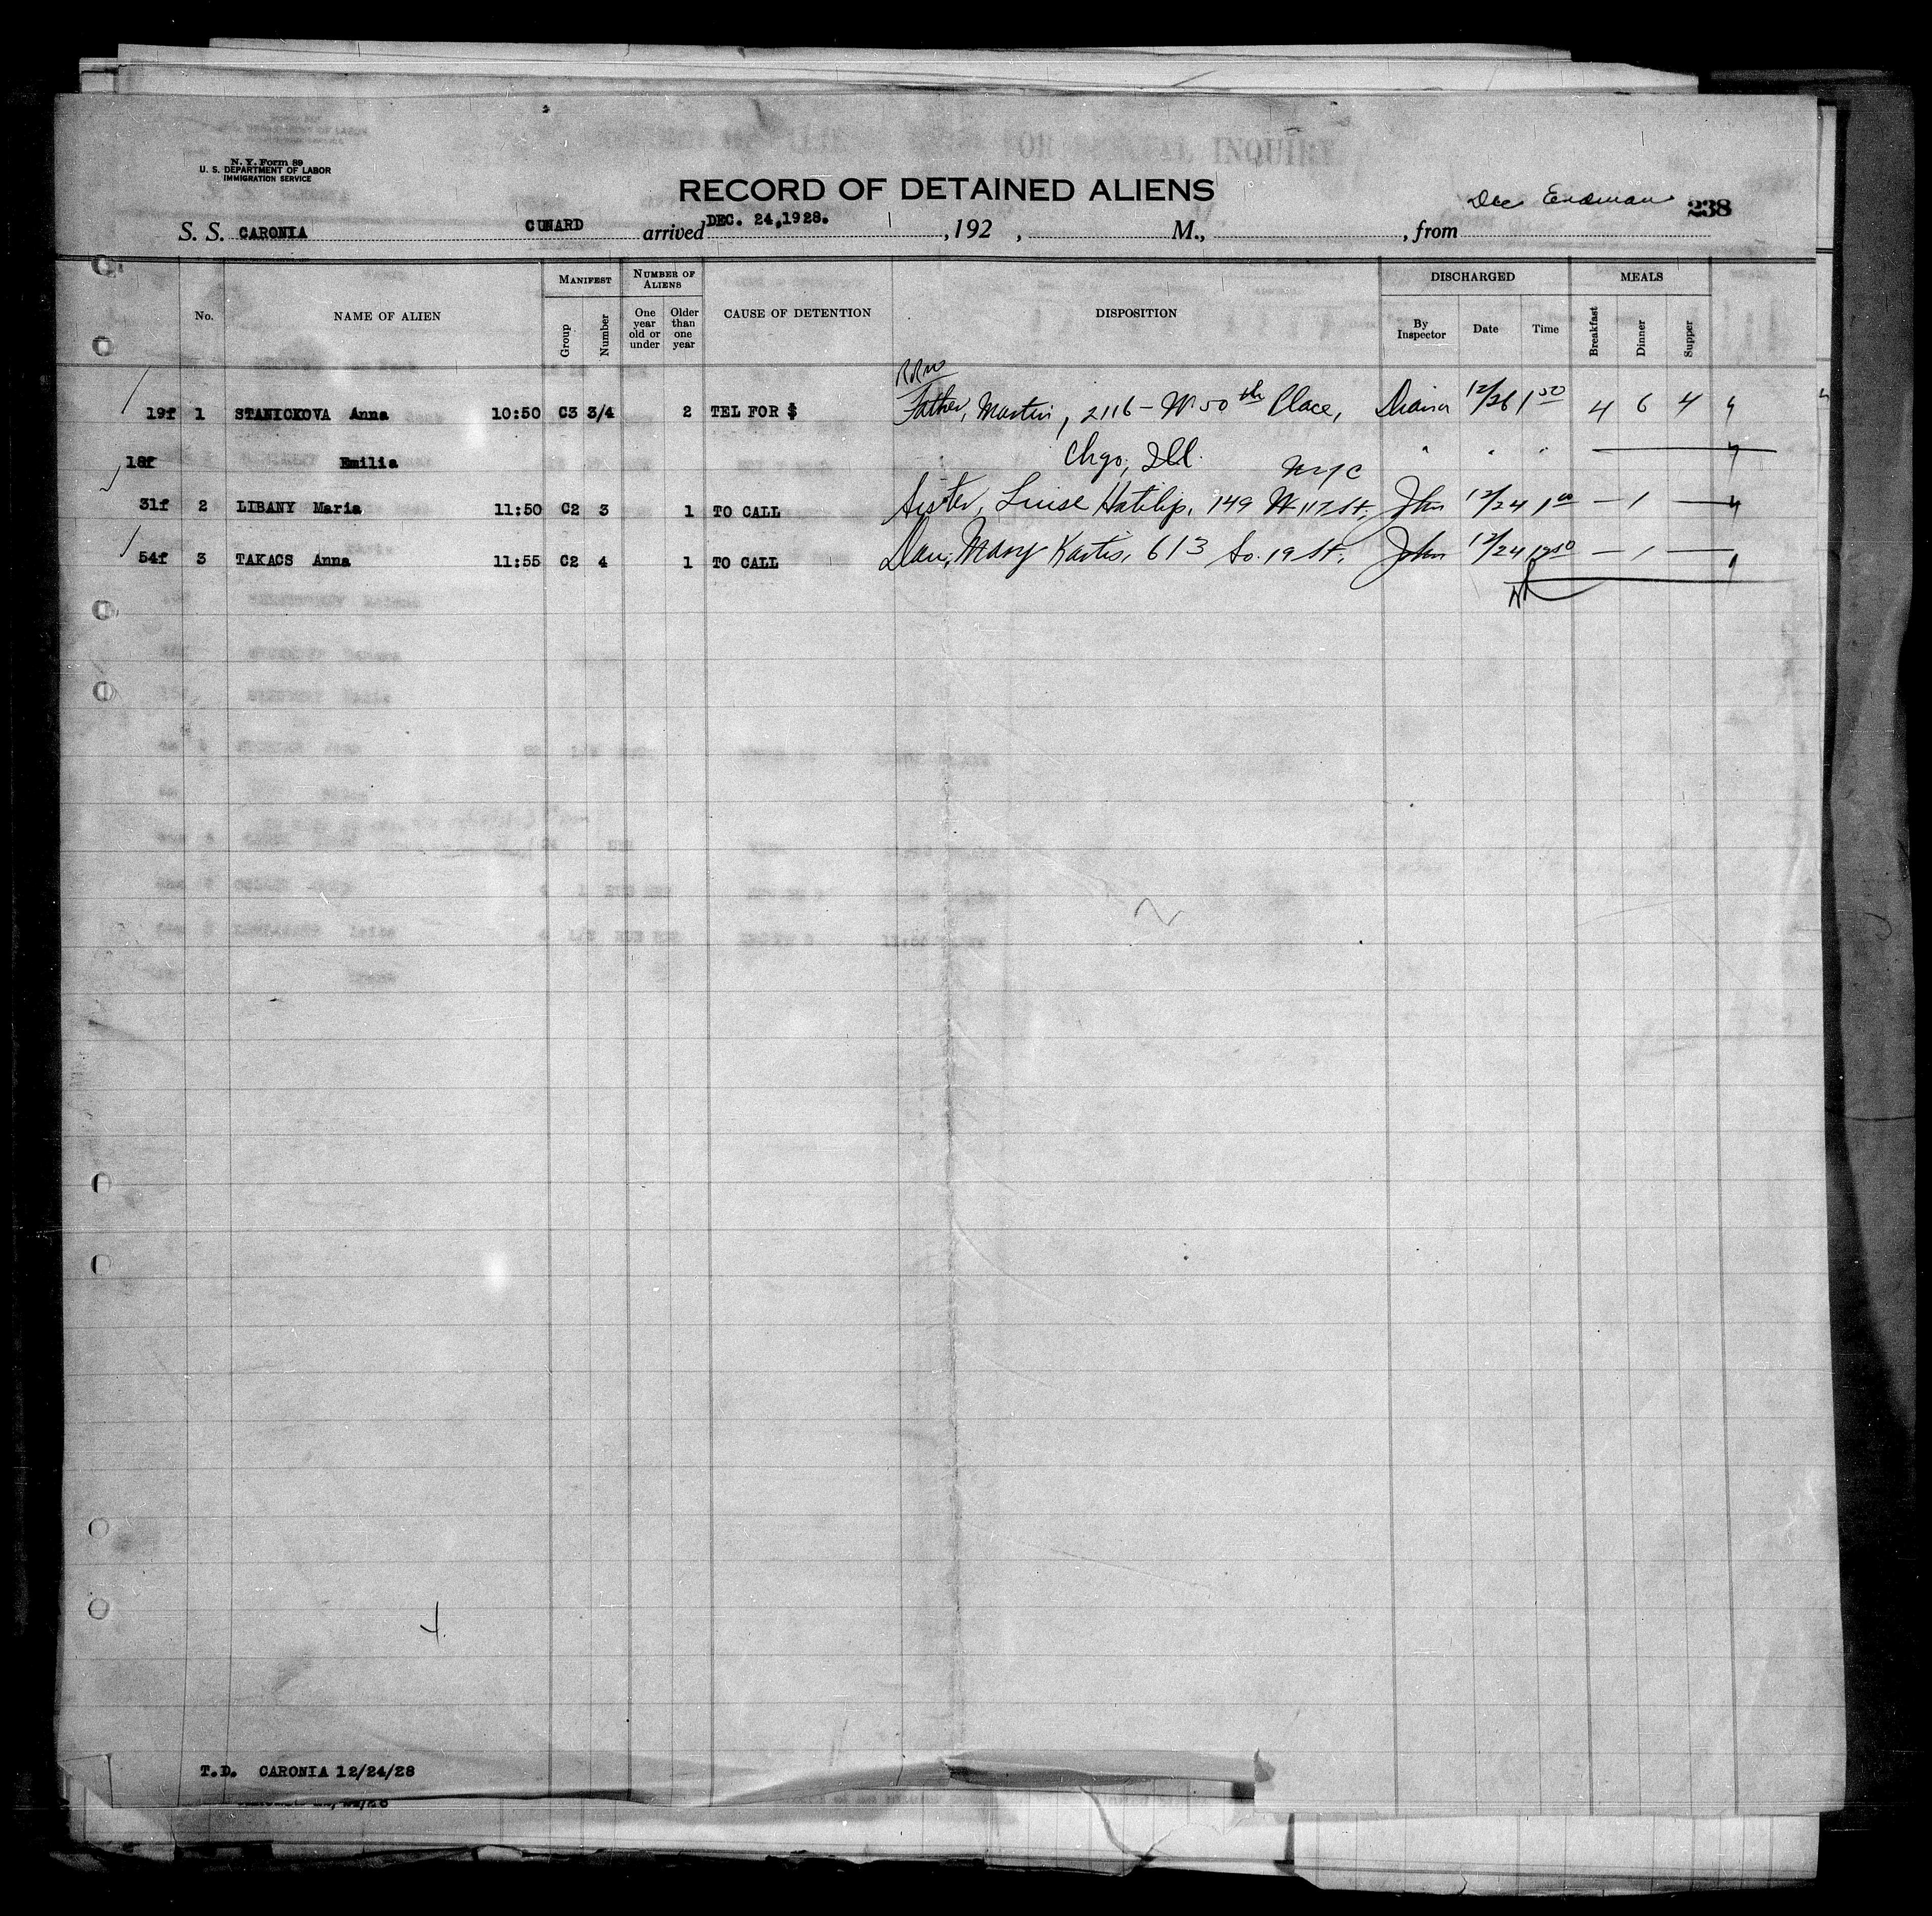 N. Y. Form 89
U. S. DEPARTMENT OF LABOR
IMMIGRATION SERVICE
FOR SPECIAL INQUIRY
RECORD OF DETAINED ALIENS
238
S. S. CARONIA CUNARD arrived DEC. 24,1928. , 192 , M., , from
No. NAME OF ALIEN MANIFEST Group Number NUMBER OF ALIENS One year old or under Older than one year CAUSE OF DETENTION DISPOSITION DISCHARGED By Inspector Date Time MEALS Breakfast Dinner Supper
19f 1 STANICKOVA Anna 10:50 C3 3/4 2 TEL FOR $ Father, Martin, 2116 - W 50th Place, 12/26 1 50 4 6 4
18f Emilia Chgo, Ill. " " "
NYC
31f 2 LIBANY Maria 11:50 C2 3 1 TO CALL Sister, Luise 149 W 117 St, John 12/24 1 00 — 1 —
54f 3 TAKACS Anna 11:55 C2 4 1 TO CALL Dau, Mary 613 So. 19 St, John 12/24 12 50 — 1 —
T.D. CARONIA 12/24/28